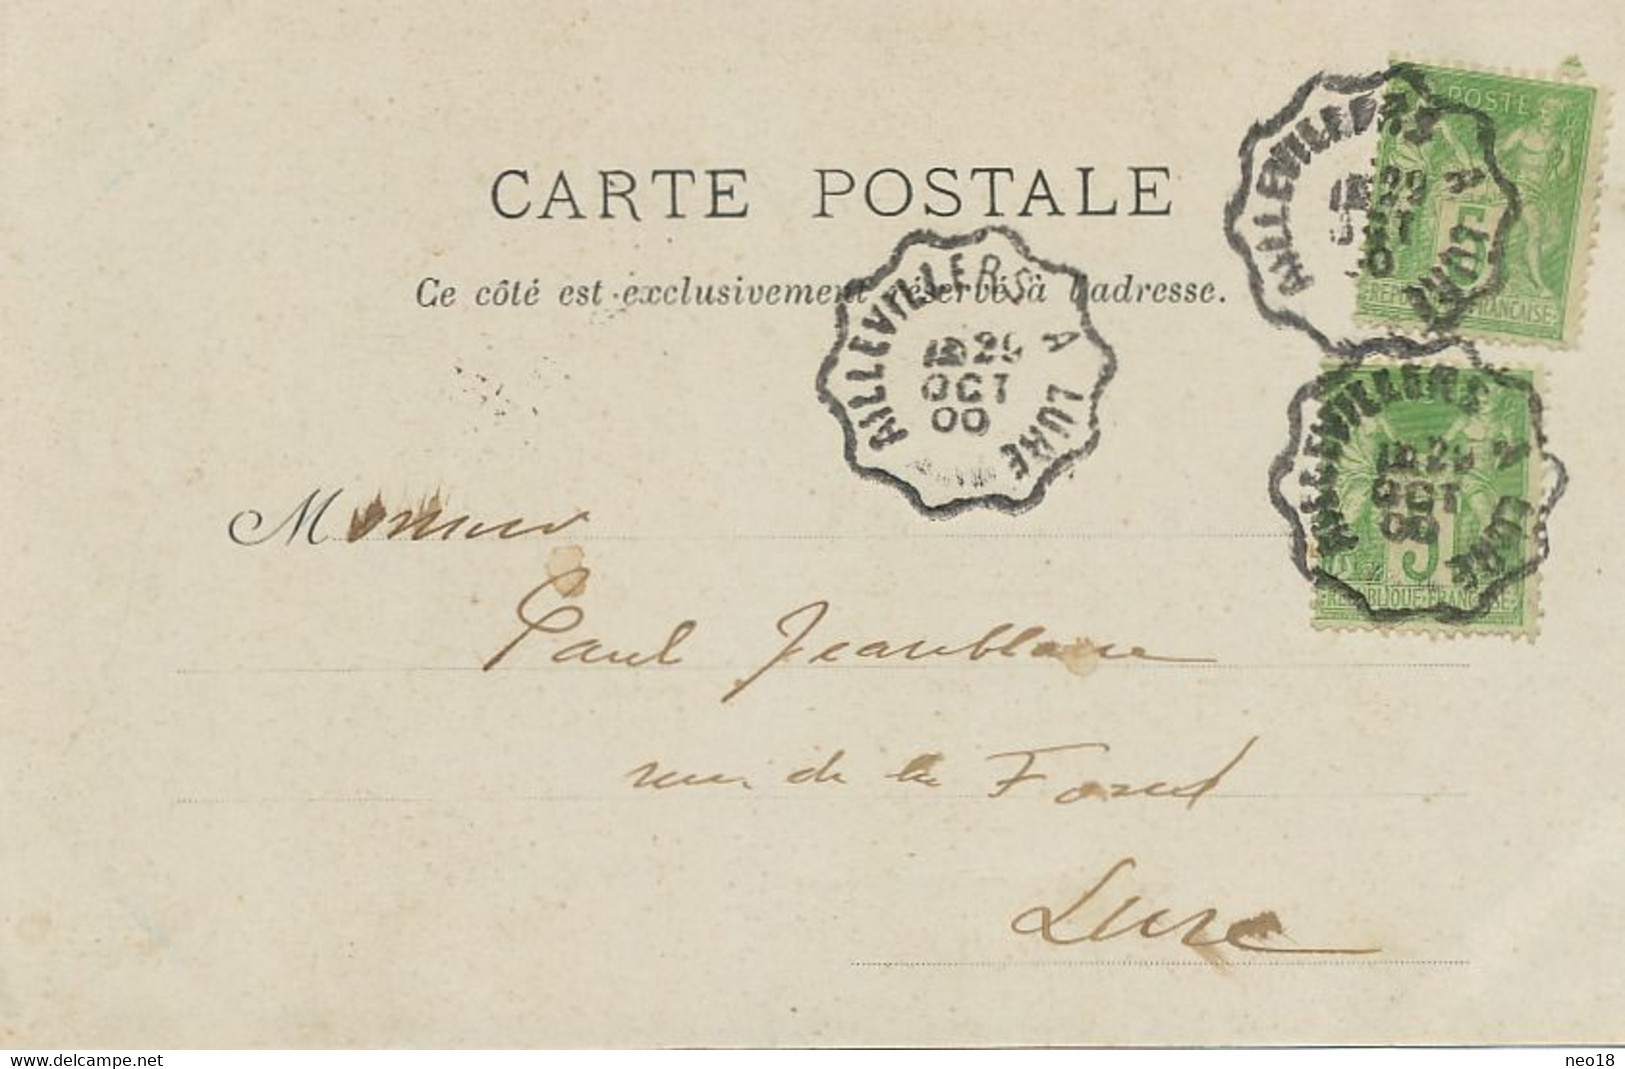 POSTE
AILLEVILLERS A LURE
29
OCT
5
RÉPUBLIQUE FRANÇAISE
CARTE POSTALE
Ce côté est exclusivement réservé à l'adresse.
AILLEVILLERS A LURE
29
OCT
00
AILLEVILLERS A LURE
29
OCT
00
5
RÉPUBLIQUE FRANÇAISE
Monsieur
Paul Jeanblanc
rue de la Font
Lure
www.delcampe.net
neo18